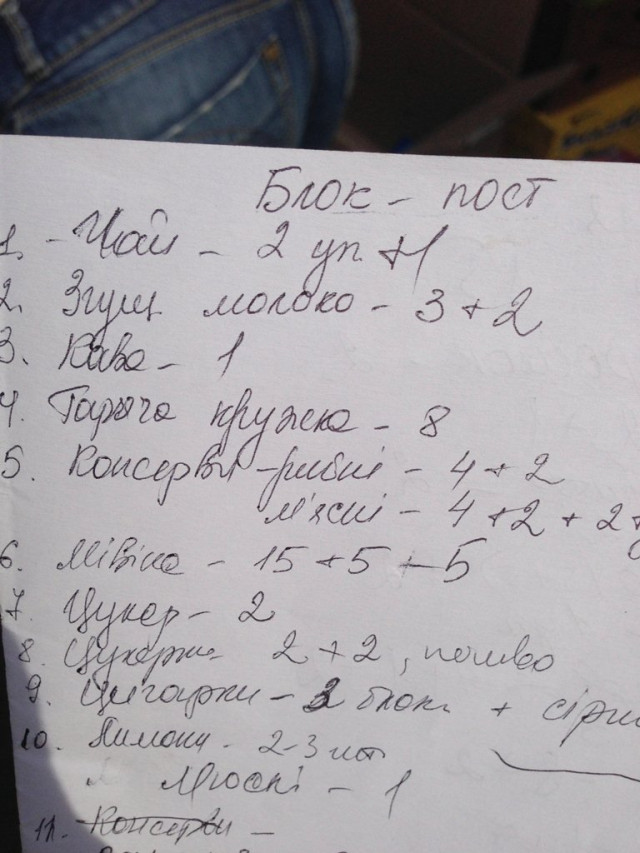 Блок - пост
1. - Чай - 2 уп +1
2. Згущ молоко - 3 + 2
3. Кава - 1
4. Гаряча кружка - 8
5. Консерви - рибні - 4 + 2
м'ясні - 4 + 2 + 2 +
6. Мівіна - 15 + 5 + 5
7. Цукер - 2
8. Цукерки 2 + 2, печиво
9. Цигарки - 2 блоки + сірни
10. Лимони - 2-3 шт
Мюслі - 1
11. Консерви -